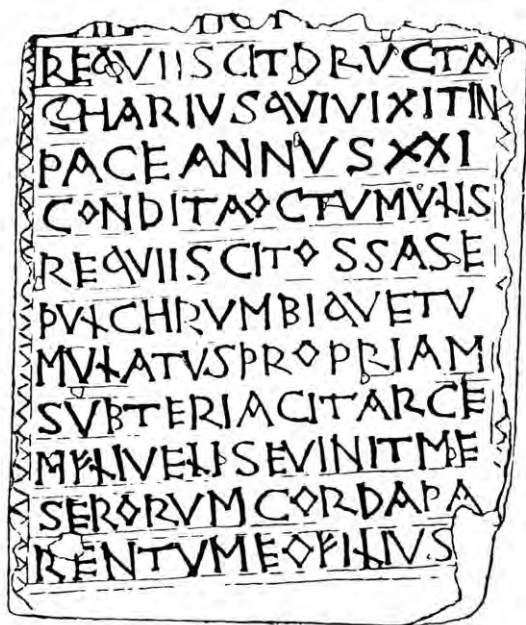 REQVIISCITDRVCTA
CHARIVSQVIVIXITIN
PACEANNVSXXI
CONDITAOCTVMVLIS
REQVIISCITOSSASE
PVLCHRVMBIQVETV
MVLATVSPROPRIAM
SVBTERIACITARCE
MFLIVELISEVINITME
SERORVMCORDAPA
RENTVMEOFILIVS